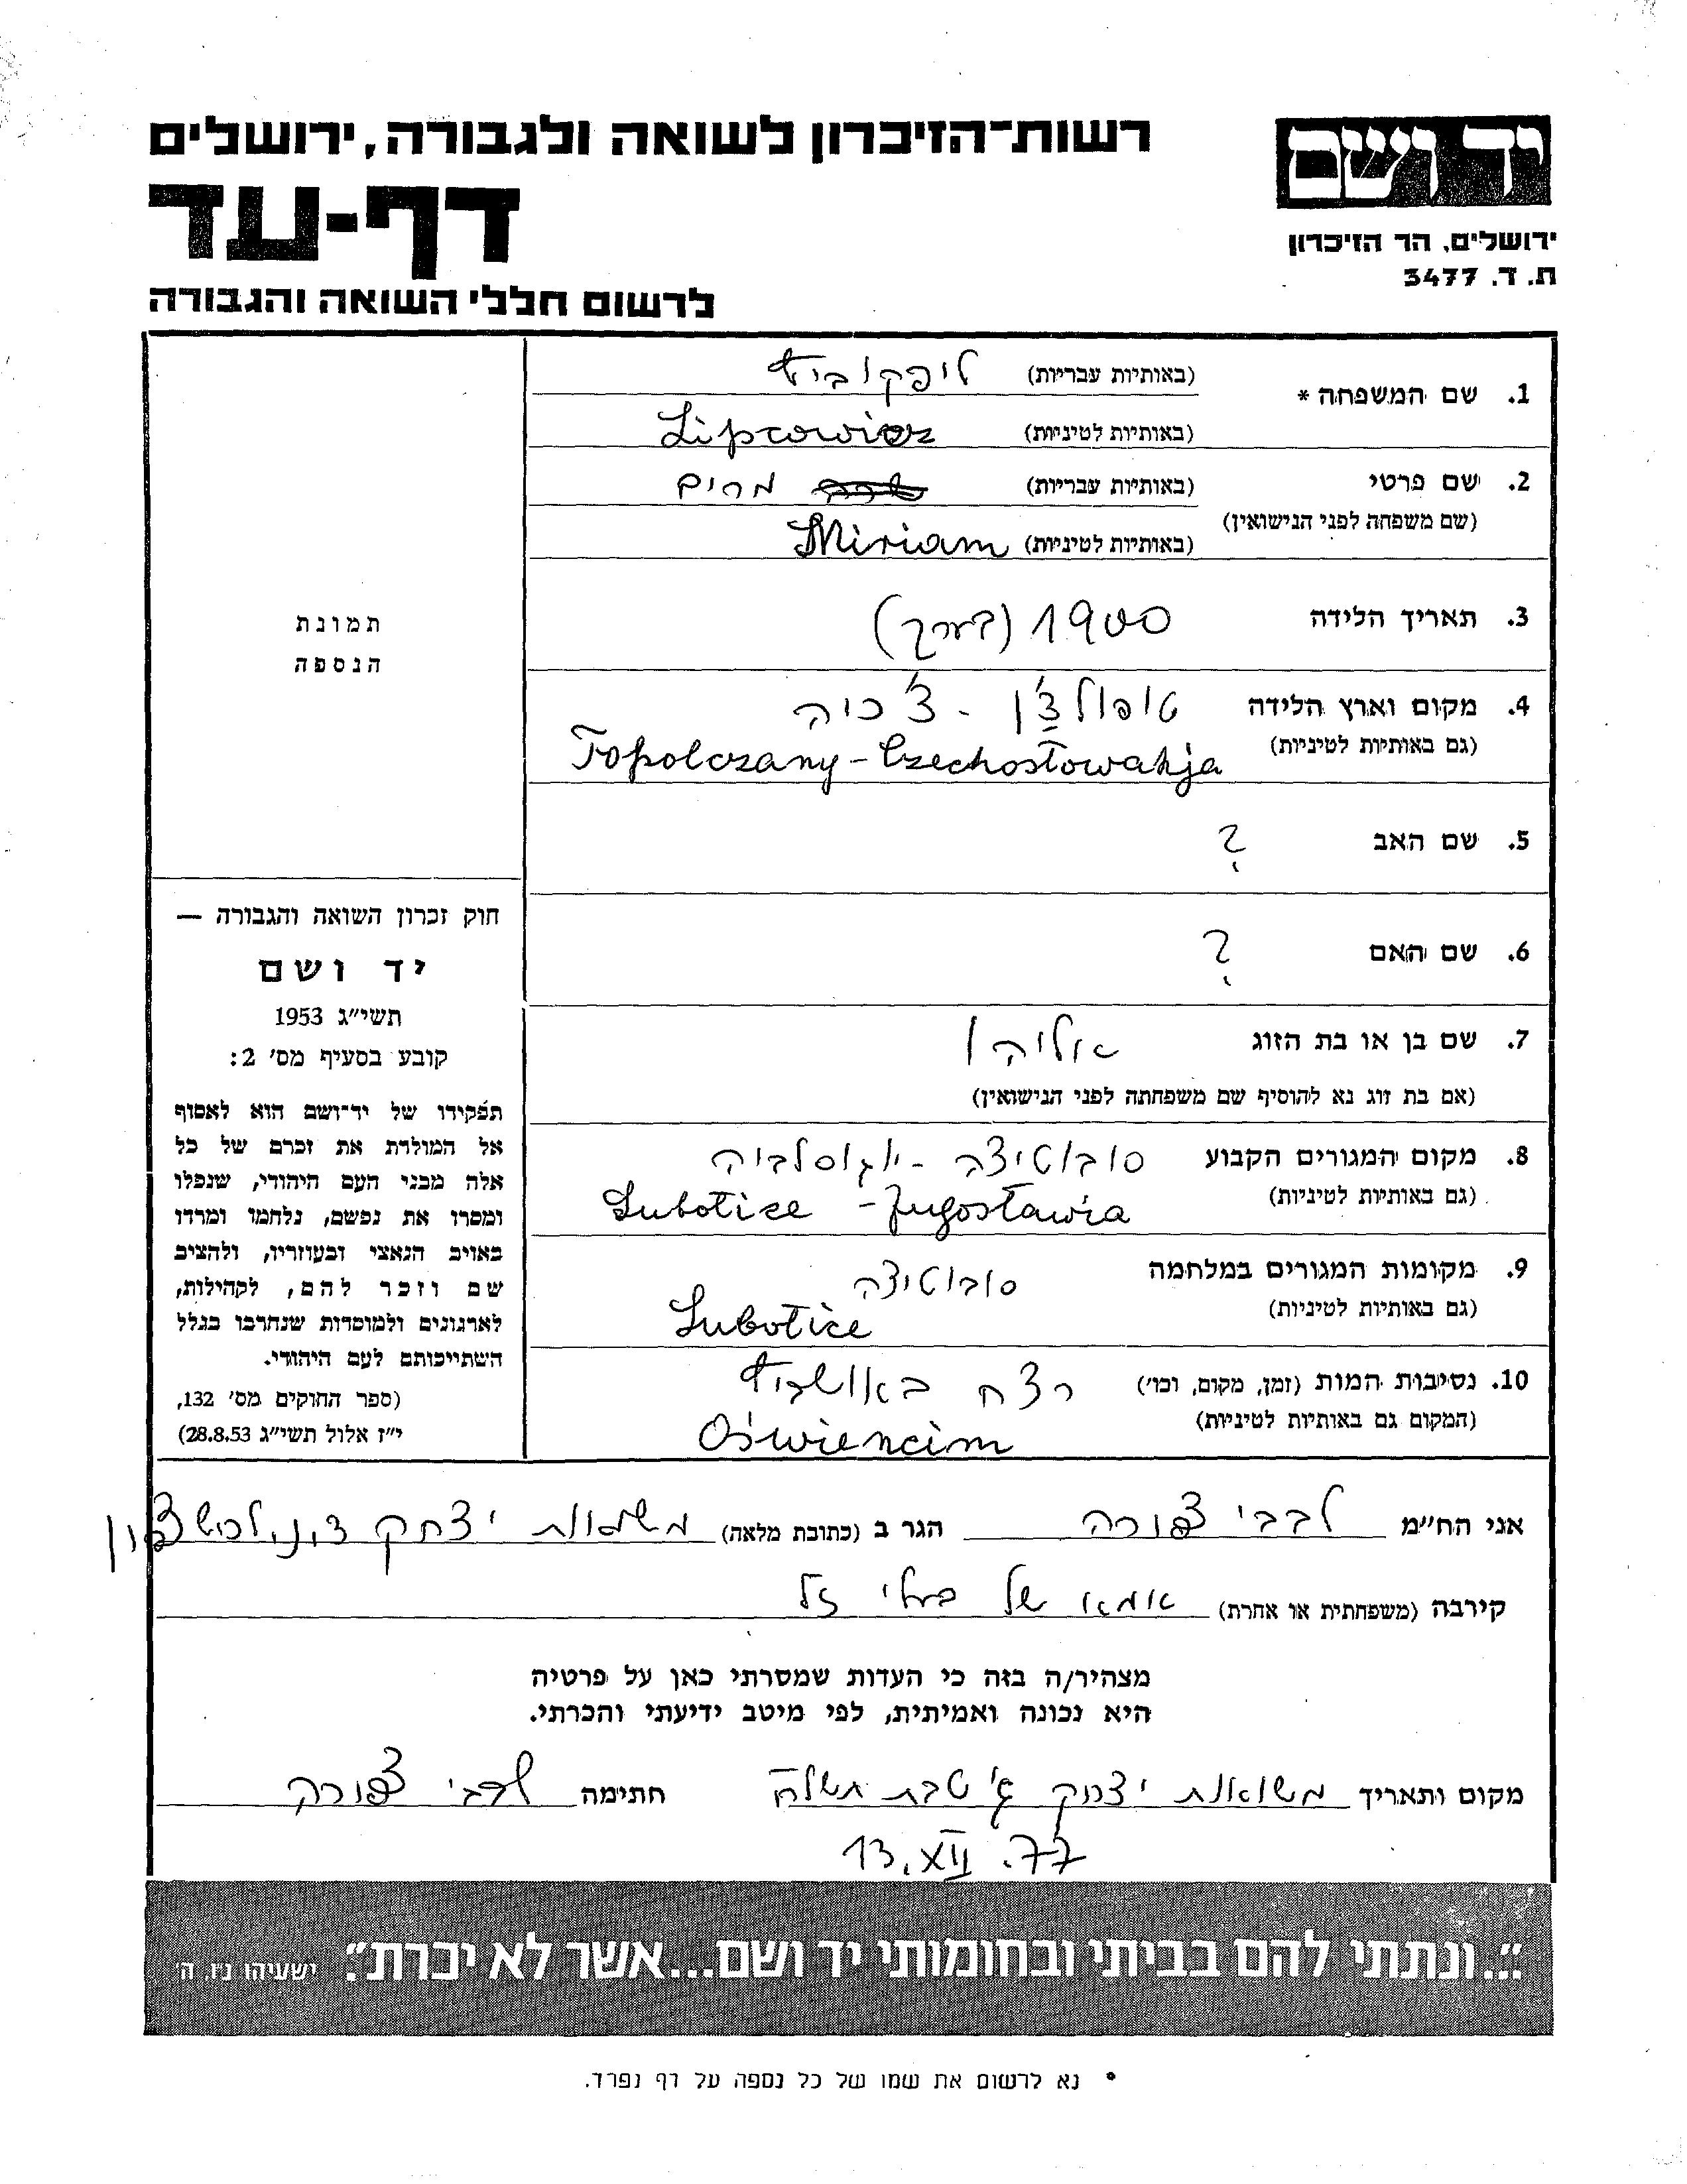 רשות־הזיכרון לשואה ולגבורה, ירושלים
דף-עד
לרשום חללי השואה והגבורה
יד ושם
ירושלים, הר הזיכרון
ת. ד. 3477
1. שם המשפחה *
(באותיות עבריות) ליפקוביץ
(באותיות לטיניות) Lipcowicz
2. שם פרטי
(שם משפחה לפני הנישואין)
(באותיות עבריות) מרים
(באותיות לטיניות) Miriam
3. תאריך הלידה 1900 (בערך)
4. מקום וארץ הלידה טופולצ'ן - צ'כיה
(גם באותיות לטיניות) Topolczany - Czechosłowakja
5. שם האב ?
6. שם האם ?
7. שם בן או בת הזוג אליהו
(אם בת זוג נא להוסיף שם משפחתה לפני הנישואין)
8. מקום המגורים הקבוע סובוטיצה - יוגוסלביה
(גם באותיות לטיניות) Subotice - Jugosławia
9. מקומות המגורים במלחמה סובוטיצה
(גם באותיות לטיניות) Subotice
10. נסיבות המות (זמן, מקום, וכו') רצח באושויץ
(המקום גם באותיות לטיניות) Oświencim
תמונת
הנספה
חוק זכרון השואה והגבורה —
יד ושם
תשי״ג 1953
קובע בסעיף מס' 2:
תפקידו של יד־ושם הוא לאסוף
אל המולדת את זכרם של כל
אלה מבני העם היהודי, שנפלו
ומסרו את נפשם, נלחמו ומרדו
באויב הנאצי ובעוזריו, ולהציב
שם וזכר להם, לקהילות,
לארגונים ולמוסדות שנחרבו בגלל
השתייכותם לעם היהודי.
(ספר החוקים מס' 132,
י״ז אלול תשי״ג 28.8.53)
אני הח״מ לבבי צפורה הגר ב (כתובת מלאה) משואות יצחק ד.נ. לכיש צפון
קירבה (משפחתית או אחרת) אמא של בעלי ז"ל
מצהיר/ה בזה כי העדות שמסרתי כאן על פרטיה
היא נכונה ואמיתית, לפי מיטב ידיעתי והכרתי.
מקום ותאריך משואות יצחק ג' טבת תשל"ח חתימה לבבי צפורה
13.XII.77
"...ונתתי להם בביתי ובחומותי יד ושם...אשר לא יכרת". ישעיהו נ"ו, ה'
* נא לרשום את שמו של כל נספה על דף נפרד.